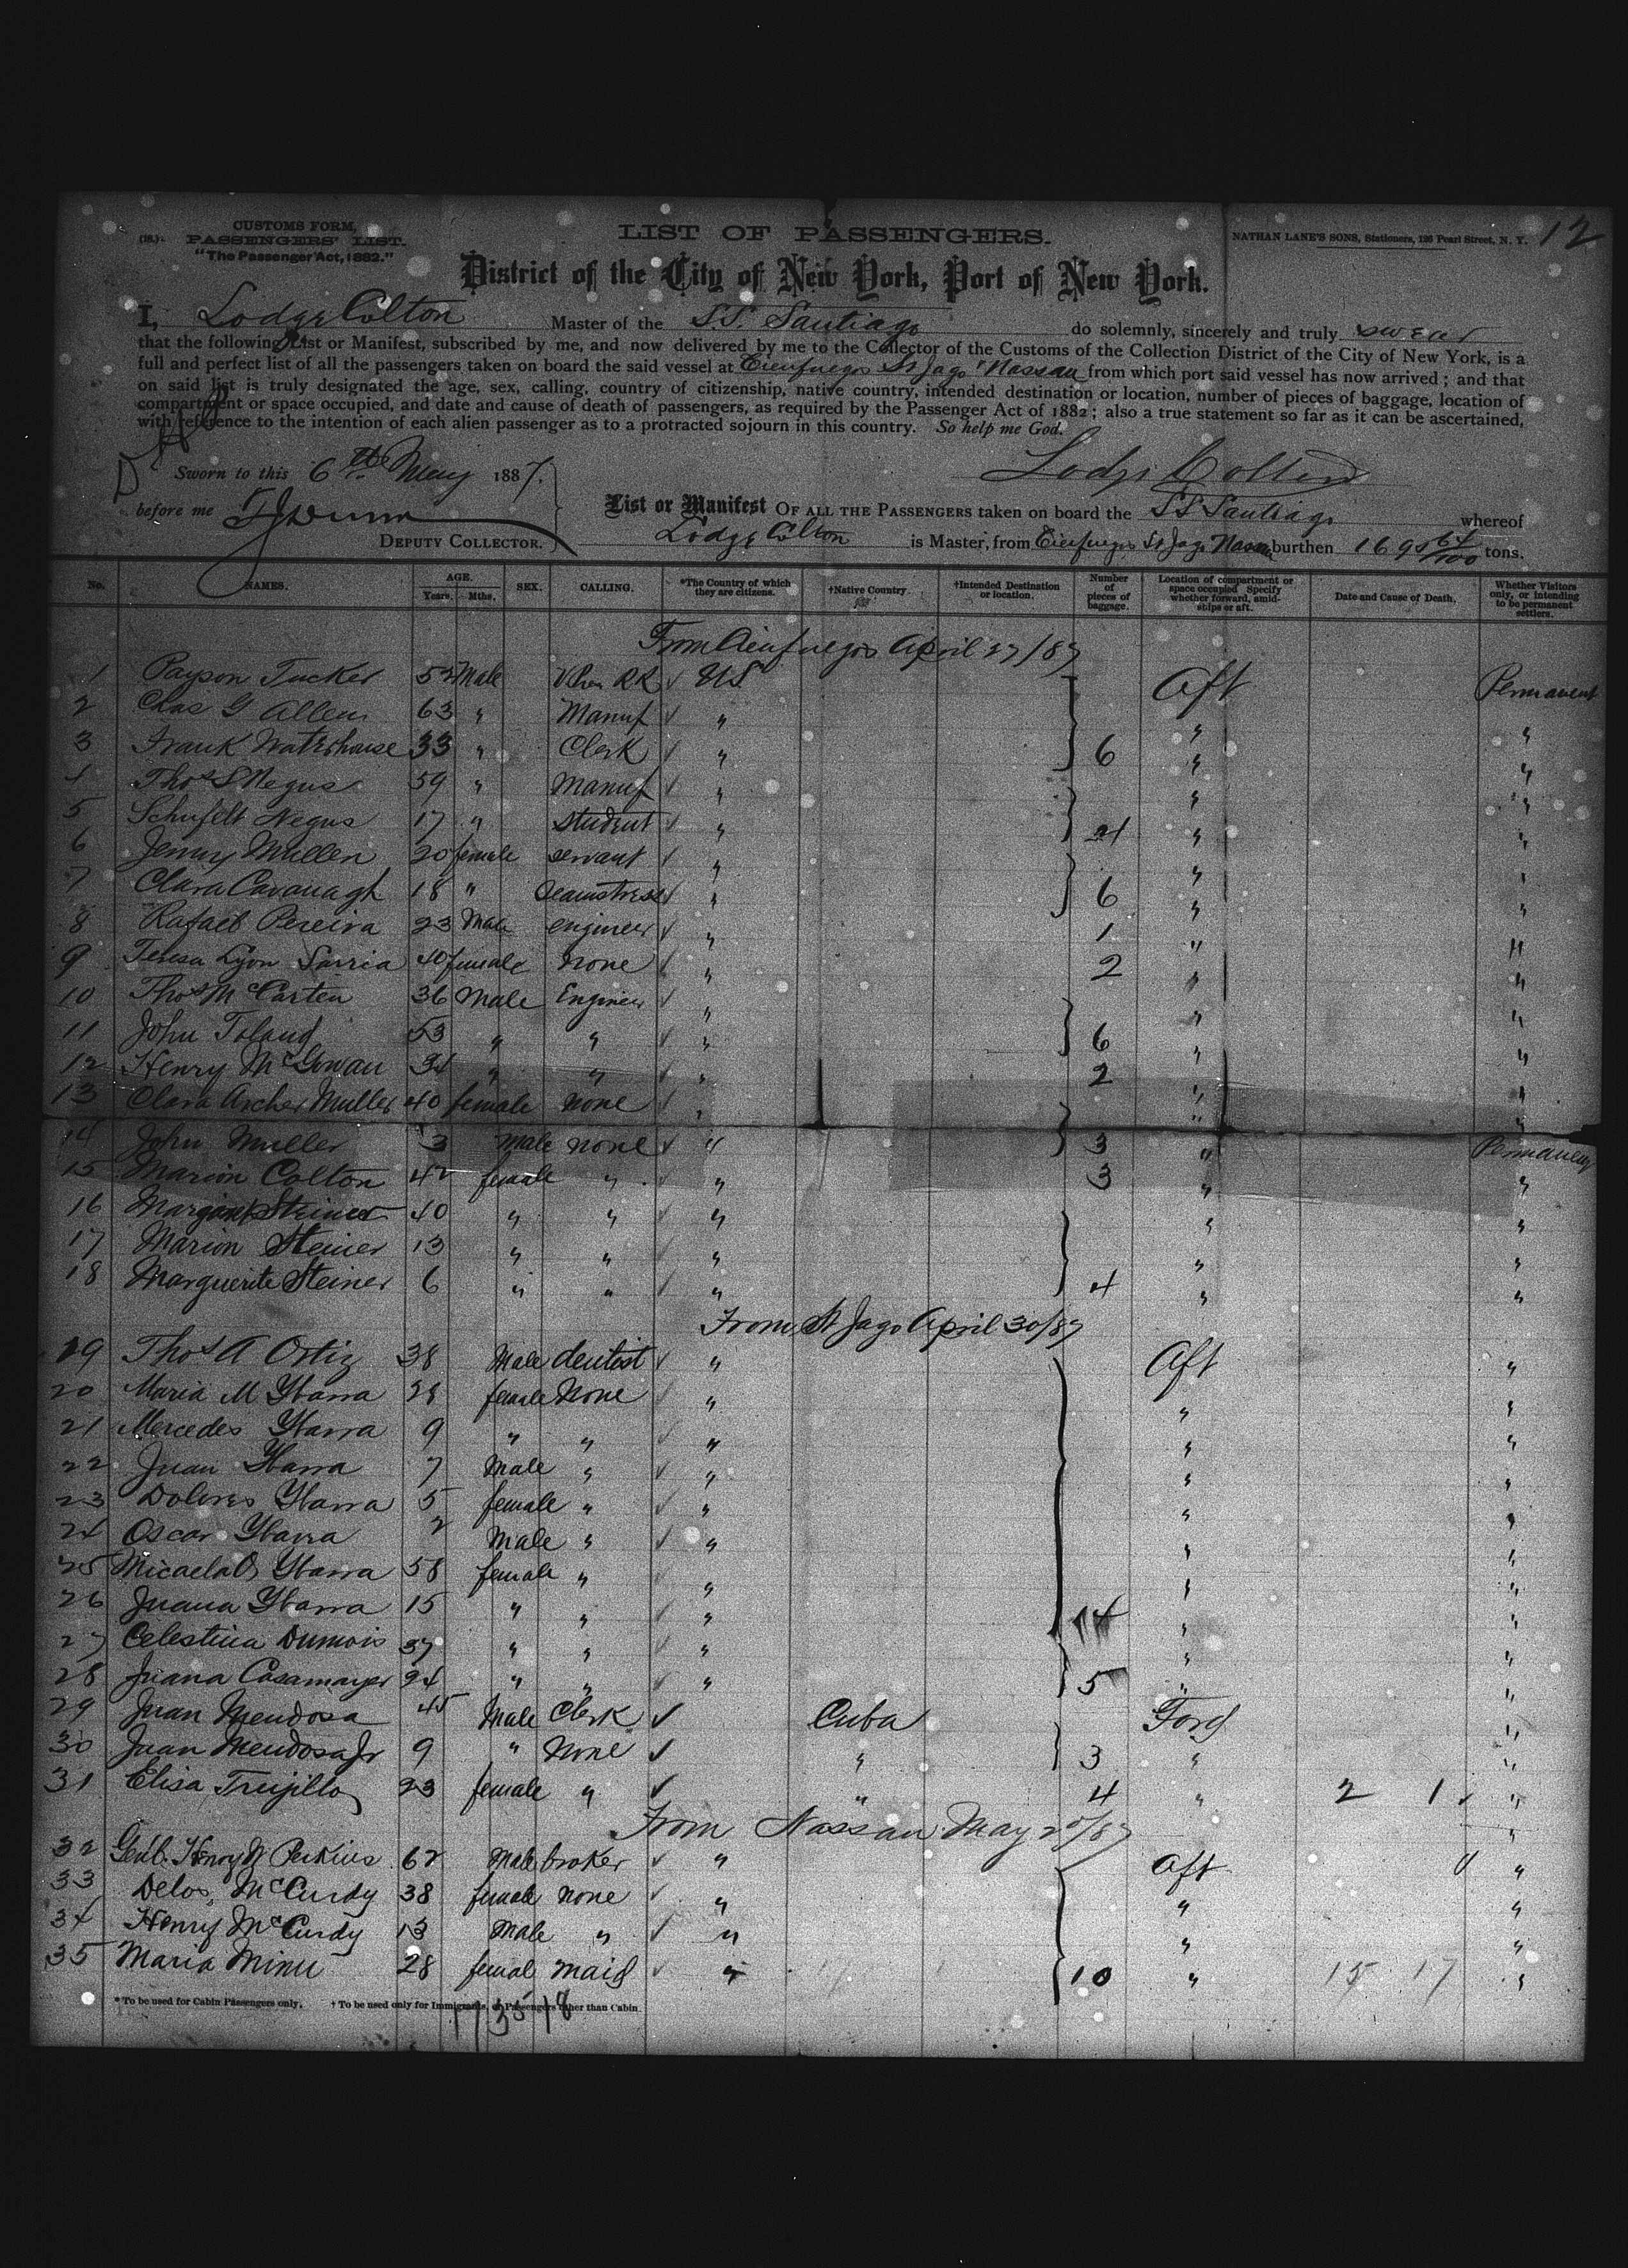 12
CUSTOMS FORM,
PASSENGERS' LIST.
"The Passenger Act, 1882."
LIST OF PASSENGERS.
NATHAN LANE'S SONS, Stationers, 126 Pearl Street, N. Y.
District of the City of New York, Port of New York.
I, Lodge Colton Master of the S.S. Santiago do solemnly, sincerely and truly swear
that the following List or Manifest, subscribed by me, and now delivered by me to the Collector of the Customs of the Collection District of the City of New York, is a
full and perfect list of all the passengers taken on board the said vessel at Cienfuegos St Jago Nassau from which port said vessel has now arrived; and that
on said list is truly designated the age, sex, calling, country of citizenship, native country, intended destination or location, number of pieces of baggage, location of
compartment or space occupied, and date and cause of death of passengers, as required by the Passenger Act of 1882; also a true statement so far as it can be ascertained,
with reference to the intention of each alien passenger as to a protracted sojourn in this country. So help me God.
Sworn to this 6th May 1887.
Lodge Colton
before me
DEPUTY COLLECTOR.
List or Manifest OF ALL THE PASSENGERS taken on board the SS Santiago whereof
Lodge Colton is Master, from Cienfuegos St Jago Nassau burthen 1695 64/100 tons.
No. NAMES. AGE. Years. Mths. SEX. CALLING. *The Country of which they are citizens. †Native Country. †Intended Destination or location. Number of pieces of baggage. Location of compartment or space occupied Specify whether forward, amidships or aft. Date and Cause of Death. Whether Visitors only, or intending to be permanent settlers.
From Cienfuegos April 27/87
1 Payson Tucker 52 Male RR ✓ US Aft Permanent
2 Chas G Allen 63 " Manuf ✓ " " "
3 Frank Waterhouse 33 " Clerk ✓ " 6 " "
4 Thos S Negus 59 " Manuf ✓ " " "
5 Schufelt Negus 17 " Student ✓ " 4 " "
6 Jenny Mullen 20 female servant ✓ " " "
7 Clara Cavanagh 18 " Seamstress ✓ " 6 " "
8 Rafael Pereira 23 Male engineer ✓ " 1 " "
9 Teresa Lyon Sarria 40 female none ✓ " 2 " "
10 Thos McCarten 36 Male Engineer ✓ " " "
11 John Toland 53 " " ✓ " 6 " "
12 Henry McGowan 34 " " ✓ " 2 " "
13 Clara Archer Muller 40 female none ✓ " " "
14 John Muller 3 Male none ✓ " 3 " Permanent
15 Marion Colton 42 female " ✓ " 3 " "
16 Steiner 40 " " ✓ " " "
17 Marion Steiner 13 " " ✓ " " "
18 Marguerite Steiner 6 " " ✓ " 4 " "
From St Jago April 30/87
19 Thos A Ortiz 38 Male dentist ✓ " Aft "
20 Maria M Ybarra 28 female None ✓ " " "
21 Mercedes Ybarra 9 " " ✓ " " "
22 Juan Ybarra 7 Male " ✓ " " "
23 Dolores Ybarra 5 female " ✓ " " "
24 Oscar Ybarra 2 Male " ✓ " " "
25 Micaela O Ybarra 58 female " ✓ " " "
26 Juana Ybarra 15 " " ✓ " 14 " "
27 Celestina Dumois 37 " " ✓ " " "
28 Juana Casamayor 24 " " ✓ " 5 " "
29 Juan Mendosa 45 Male Clerk ✓ Cuba Ford "
30 Juan Mendosa Jr 9 " None ✓ " 3 " "
31 Elisa Trujillo 23 female " ✓ " 4 " 2 1 "
From Nassau May 2/87
32 Genl. Henry W Perkins 62 Male broker ✓ " Aft "
33 Delos McCurdy 38 female none ✓ " " "
34 Henry McCurdy 13 Male " ✓ " " "
35 Maria Minu 28 female maid ✓ " 10 " 15 17 "
* To be used for Cabin Passengers only. † To be used only for Immigrants, or Passengers other than Cabin.
17 35 18